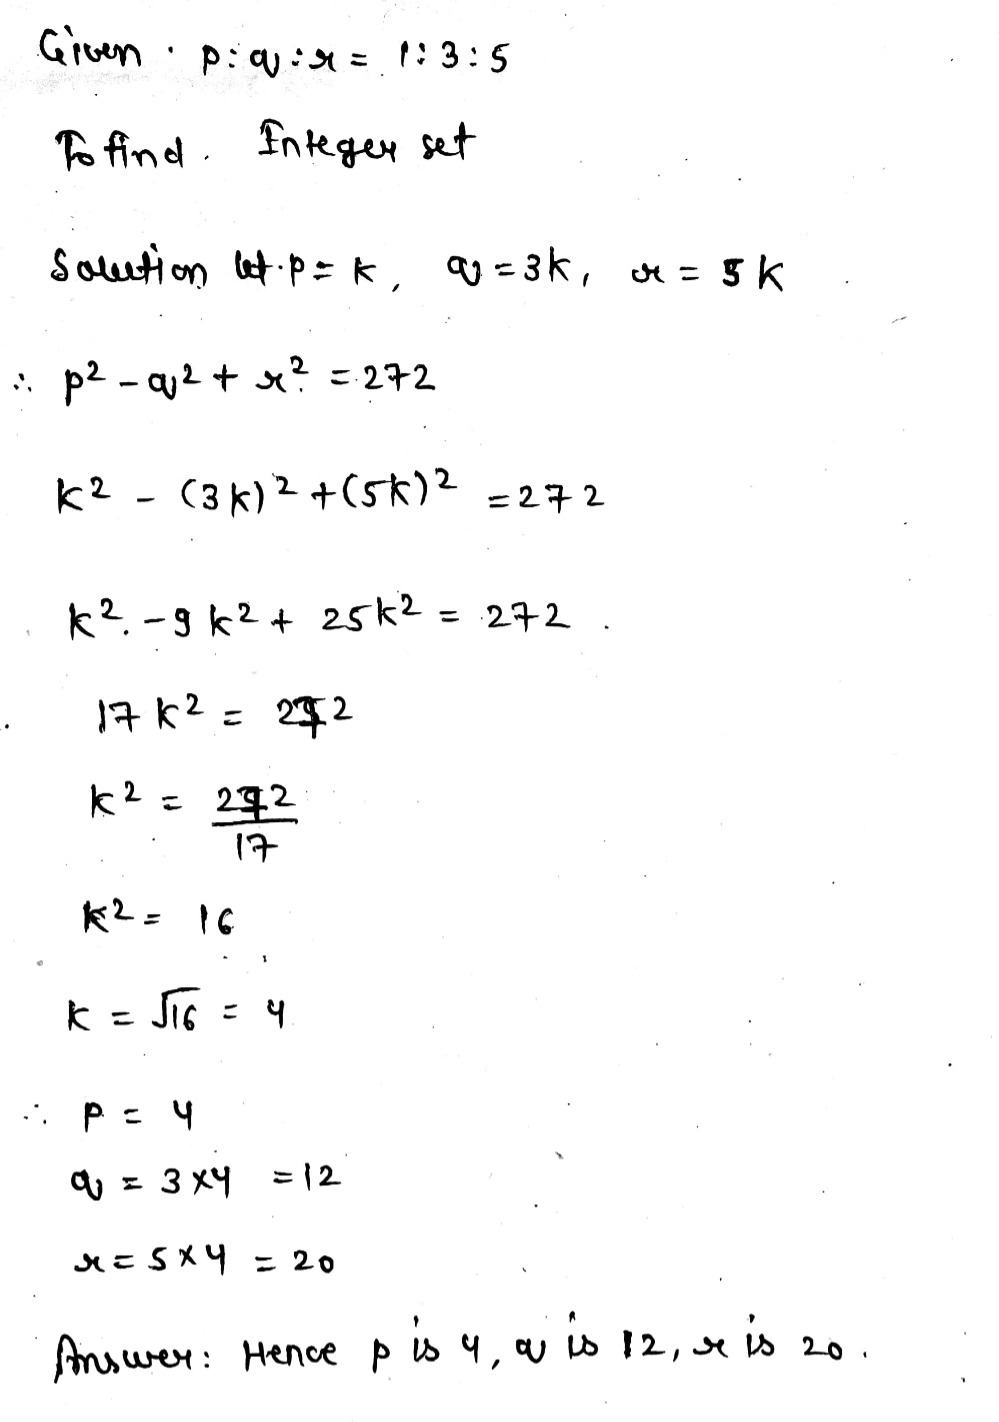 Given. p:q:r = 1:3:5
To find. Integer set
Solution let.p = k, q = 3k, r = 5k
∴ p² - q² + r² = 272
k² - (3k)² + (5k)² = 272
k². - 9k² + 25k² = 272
17k² = 272
k² = 272/17
k² = 16
k = √16 = 4
∴ p = 4
q = 3×4 = 12
r = 5×4 = 20
Answer: Hence p is 4, q is 12, r is 20.